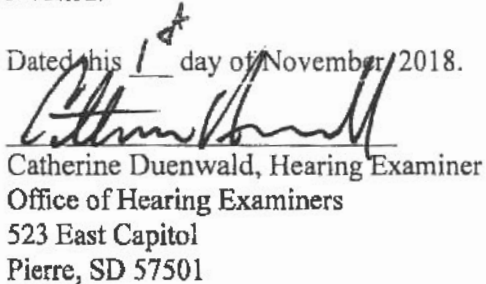 Dated this 1st day of November 2018.
Catherine Duenwald, Hearing Examiner
Office of Hearing Examiners
523 East Capitol
Pierre, SD 57501